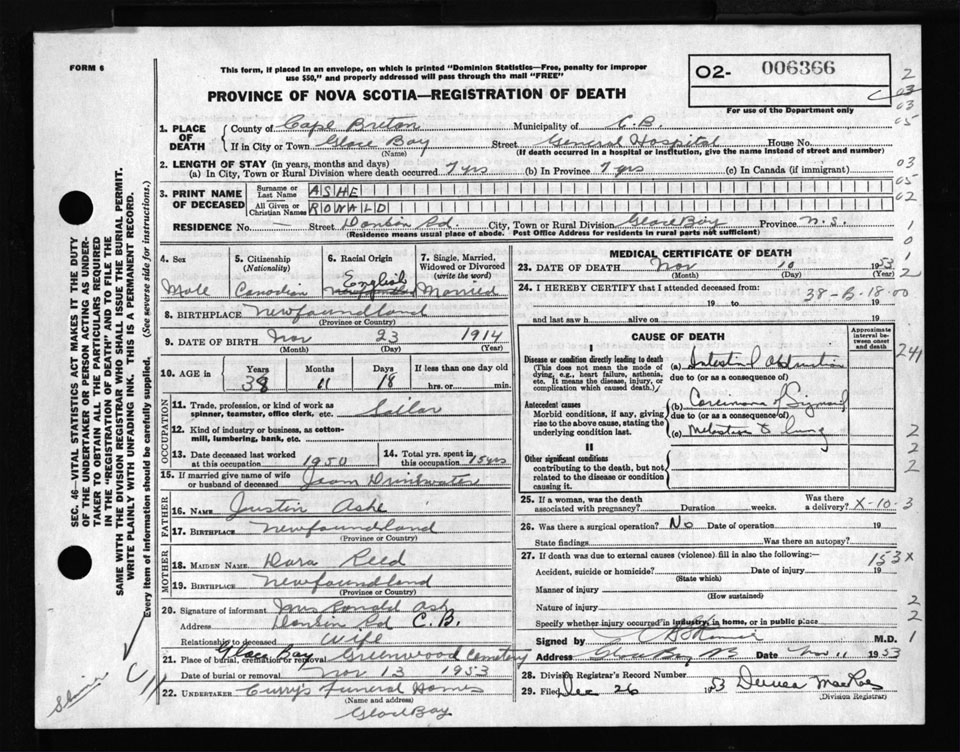 FORM 6
This form, if placed in an envelope, on which is printed "Dominion Statistics—Free, penalty for improper
use $50," and properly addressed will pass through the mail "FREE"
02- 006366
For use of the Department only
PROVINCE OF NOVA SCOTIA—REGISTRATION OF DEATH
1. PLACE OF DEATH County of Cape Breton Municipality of C.B.
If in City or Town Glace Bay Street General Hospital House No.
(Name) (If death occurred in a hospital or institution, give the name instead of street and number)
2. LENGTH OF STAY (in years, months and days)
(a) In City, Town or Rural Division where death occurred 7 yrs (b) In Province 7 yrs (c) In Canada (if immigrant)
3. PRINT NAME OF DECEASED Surname or Last Name ASHE
All Given or Christian Names RONALD
RESIDENCE No. — Street City, Town or Rural Division Glace Bay Province N.S.
(Residence means usual place of abode. Post Office Address for residents in rural parts not sufficient)
SEC. 46—VITAL STATISTICS ACT MAKES IT THE DUTY
OF THE UNDERTAKER OR PERSON ACTING AS UNDER-
TAKER TO OBTAIN ALL THE PARTICULARS REQUIRED
IN THE "REGISTRATION OF DEATH" AND TO FILE THE
SAME WITH THE DIVISION REGISTRAR WHO SHALL ISSUE THE BURIAL PERMIT.
WRITE PLAINLY WITH UNFADING INK. THIS IS A PERMANENT RECORD.
Every item of information should be carefully supplied. (See reverse side for instructions.)
4. Sex Male
5. Citizenship (Nationality) Canadian
6. Racial Origin English
7. Single, Married, Widowed or Divorced (write the word) Married
8. BIRTHPLACE Newfoundland
(Province or Country)
9. DATE OF BIRTH Nov 23 1914
(Month) (Day) (Year)
10. AGE in Years Months Days If less than one day old
38 11 18 hrs. or min.
OCCUPATION
11. Trade, profession, or kind of work as
spinner, teamster, office clerk, etc. Sailor
12. Kind of industry or business, as cotton-
mill, lumbering, bank, etc.
13. Date deceased last worked at this occupation 1950
14. Total yrs. spent in this occupation 15 yrs
15. If married give name of wife
or husband of deceased Drinkwater
FATHER
16. Name Justin Ashe
17. Birthplace Newfoundland
(Province or Country)
MOTHER
18. MAIDEN NAME Dora Reed
19. BIRTHPLACE Newfoundland
(Province or Country)
20. Signature of informant Mrs Ronald Ash
Address C.B.
Relationship to deceased Wife
21. Place of burial, cremation or removal Glace Bay Greenwood Cemetery
Date of burial or removal Nov 13 1953
22. UNDERTAKER Curry's Funeral Homes
(Name and address)
Glace Bay
MEDICAL CERTIFICATE OF DEATH
23. DATE OF DEATH Nov 10 1953
(Month) (Day) (Year)
24. I HEREBY CERTIFY that I attended deceased from:
19 to 19
38-B-18-00
and last saw h alive on 19
CAUSE OF DEATH
Approximate interval between onset and death
I
Disease or condition directly leading to death
(This does not mean the mode of
dying, e.g., heart failure, asthenia,
etc. It means the disease, injury, or
complication which caused death.)
(a) Intestinal Obstruction
due to (or as a consequence of)
Antecedent causes
Morbid conditions, if any, giving
rise to the above cause, stating the
underlying condition last.
(b) Carcinoma of Sigmoid
due to (or as a consequence of)
(c) Metastises to lung
II
Other significant conditions
contributing to the death, but not
related to the disease or condition
causing it.
25. If a woman, was the death
associated with pregnancy? Duration weeks. Was there a delivery? X-10-3
26. Was there a surgical operation? No Date of operation 19
State findings Was there an autopsy?
27. If death was due to external causes (violence) fill in also the following:
Accident, suicide or homicide? Date of injury 19
(State which)
153X
Manner of injury
(How sustained)
Nature of injury
Specify whether injury occurred in industry, in home, or in public place
Signed by M.D.
Address Glace Bay NS Date Nov 11 1953
28. Division Registrar's Record Number
29. Filed Dec 26 1953
(Division Registrar)
2
03
03
05
03
05
02
1
0
1
2
241
2
2
2
2
2
1